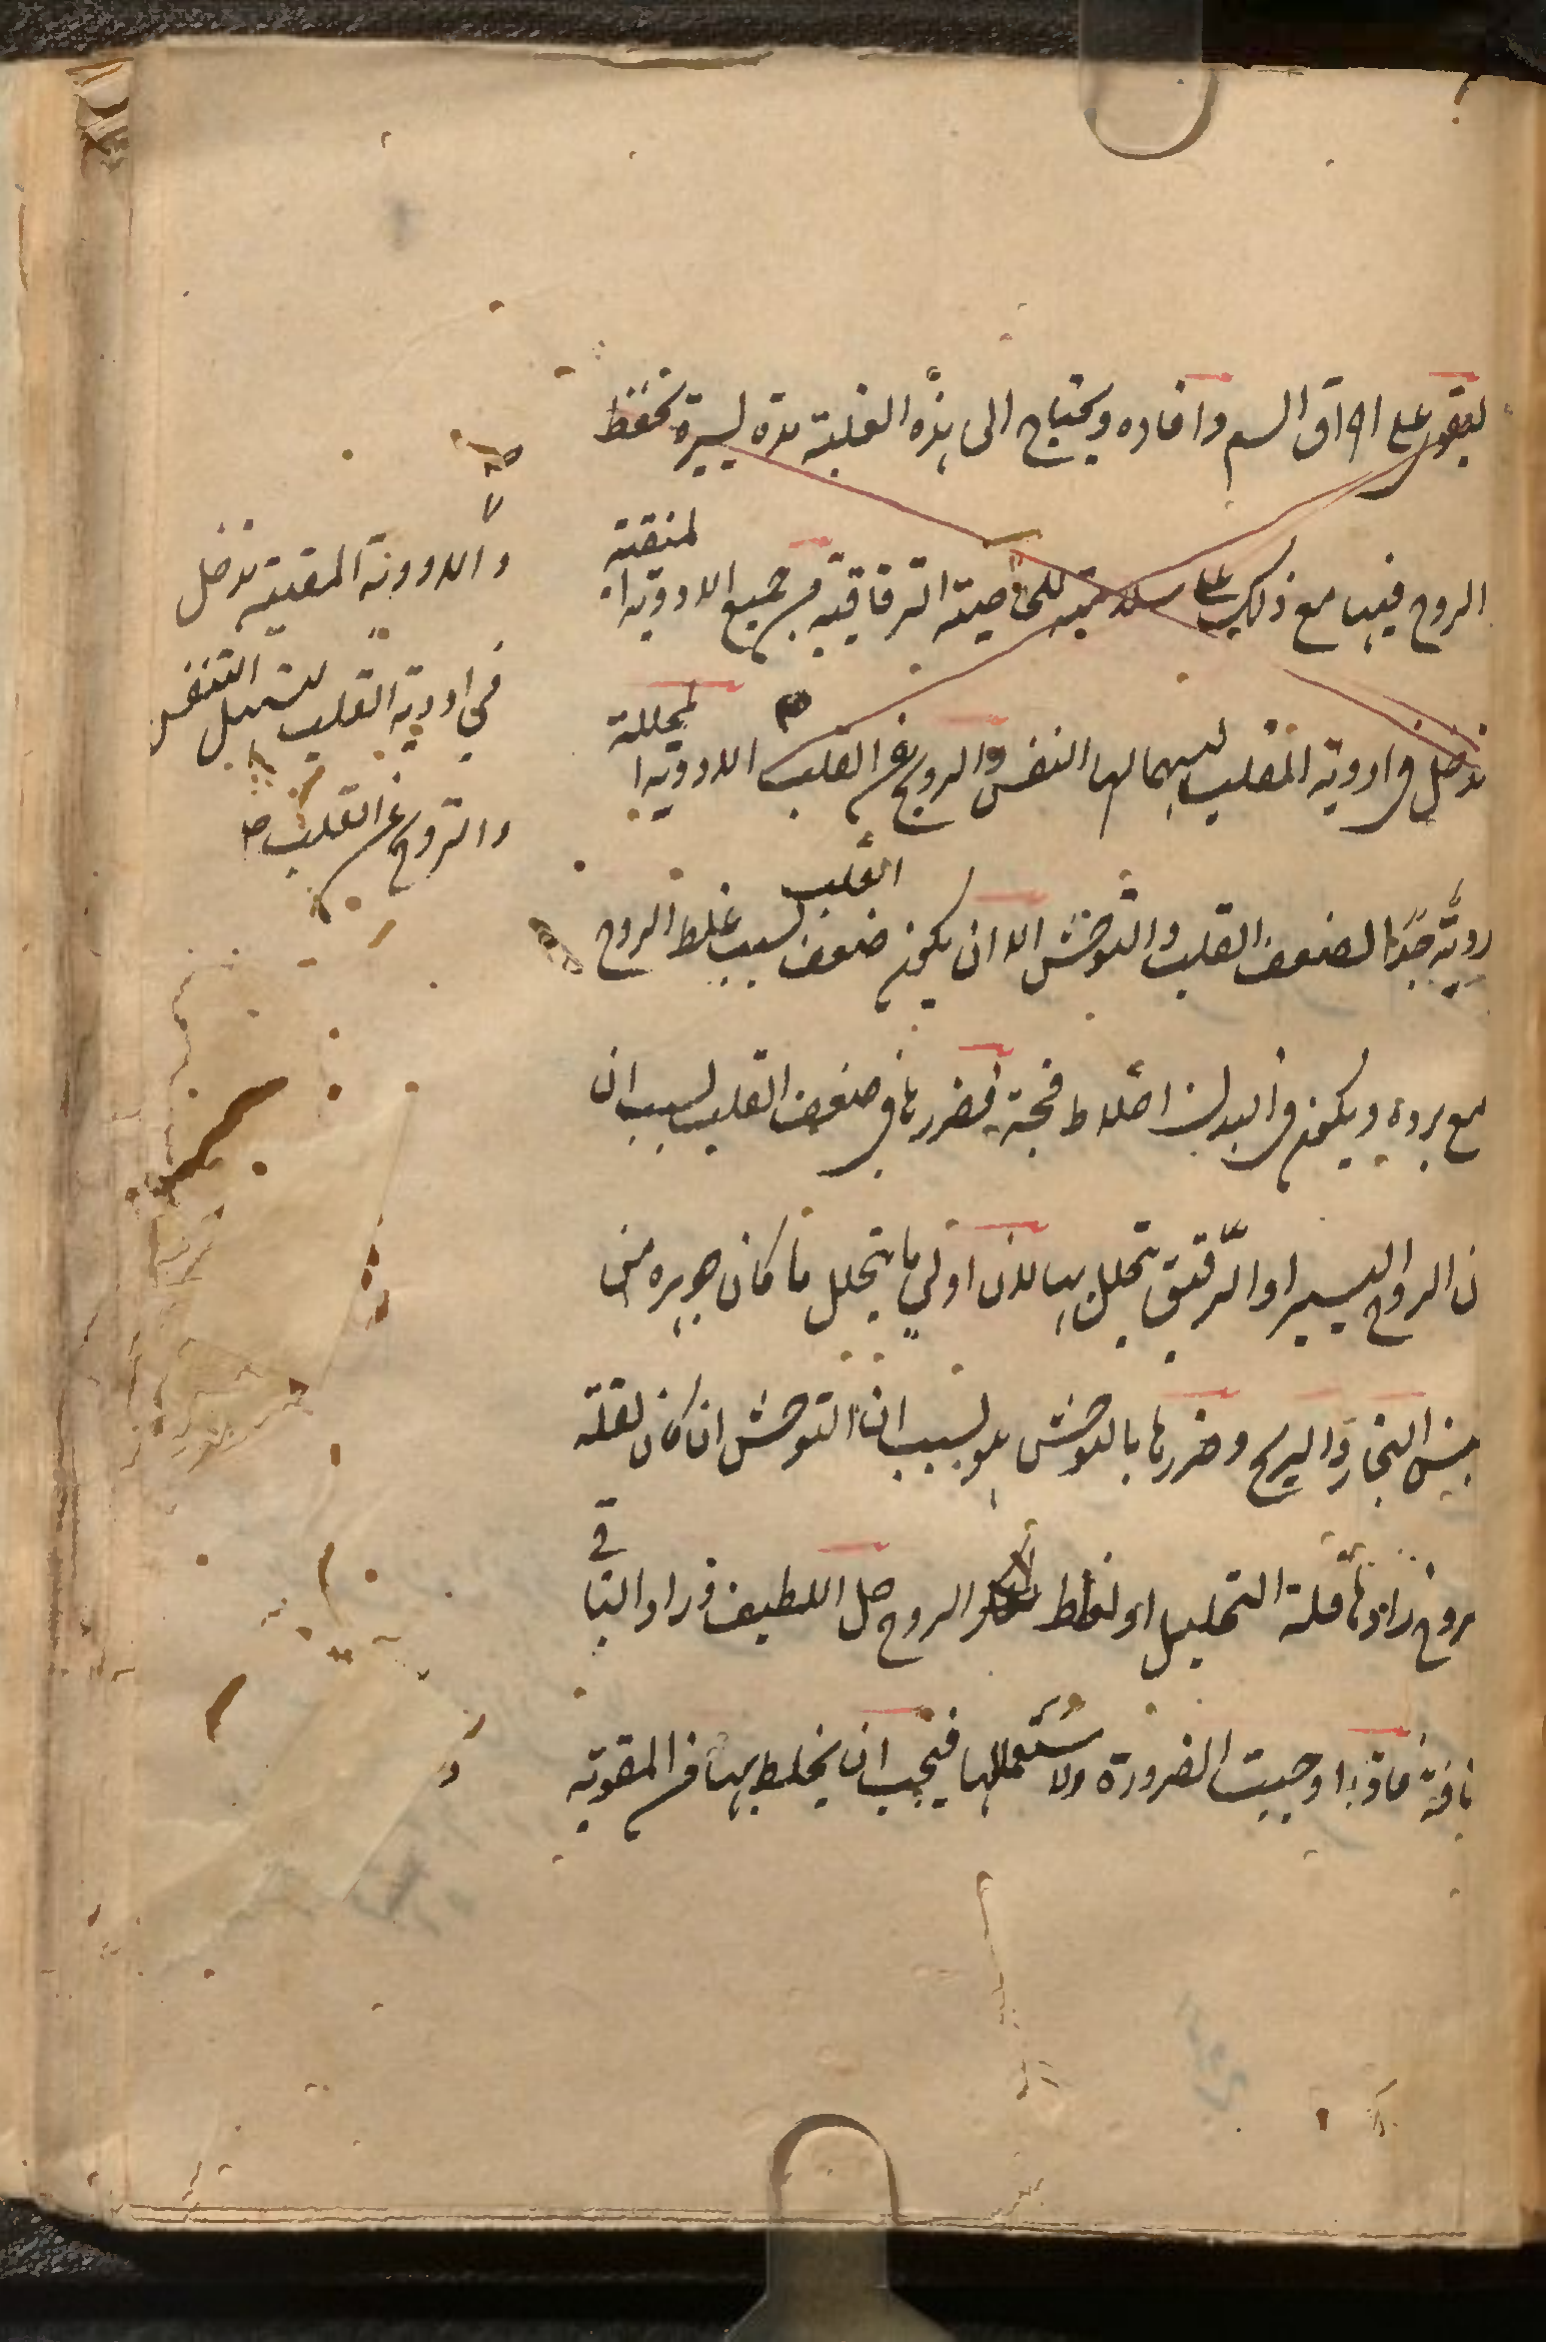 ليقوى على احراق السم وافاده ويحتاج الى هذه الغلبة مدة يسيرة تحفظ
الروح فيها مع ذلك للخاصية الترقاقية من جميع الادوية المنقية
تدخل في ادوية القلب النفس والروح عن القلب الادوية المحللة
ردية جدا لضعف القلب والتوحش الا ان يكون ضعف القلب لسبب غلظ الروح
مع برده ويكون في البدن اخلاط فجة فضررها في ضعف القلب لسبب ان
ن الروح اليسير او الرقيق يتحلل بها لان اولى ما يتحلل ما كان جوهره من
جنس البخار والريح وضررها بالتوحش هو لسبب ان التوحش ان كان لقلة
روح زادها قلة التحليل او لغلظ الروح حل اللطيف وزاد الباقي
اوجبت الضرورة ولاستعمالها فيجب ان يخلط بها من المقوية
والادوية المقيه تدخل
في ادوية القلب لتسهيل التنفس
والتروح عن القلب صح